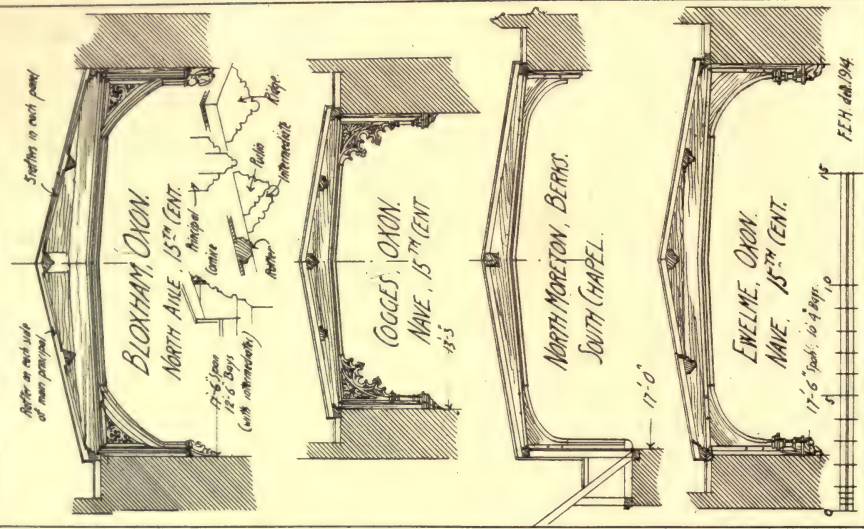 Rafter on each side
of main principal
5 rafters in each panel
BLOXHAM, OXON.
NORTH AISLE, 15TH CENT.
17'-6" Span
12'-6" Bays
(with intermediates)
Cornice
Principal
Purlin
Ridge.
Rafter
Intermediate
COGGES, OXON.
NAVE, 15TH CENT
NORTH MORETON, BERKS.
SOUTH CHAPEL.
17'-0"
EWELME, OXON.
NAVE. 15TH CENT.
17'-6" Span. 10'-4" Bays.
0 5 10 15
F.E.H. delt. 1914.